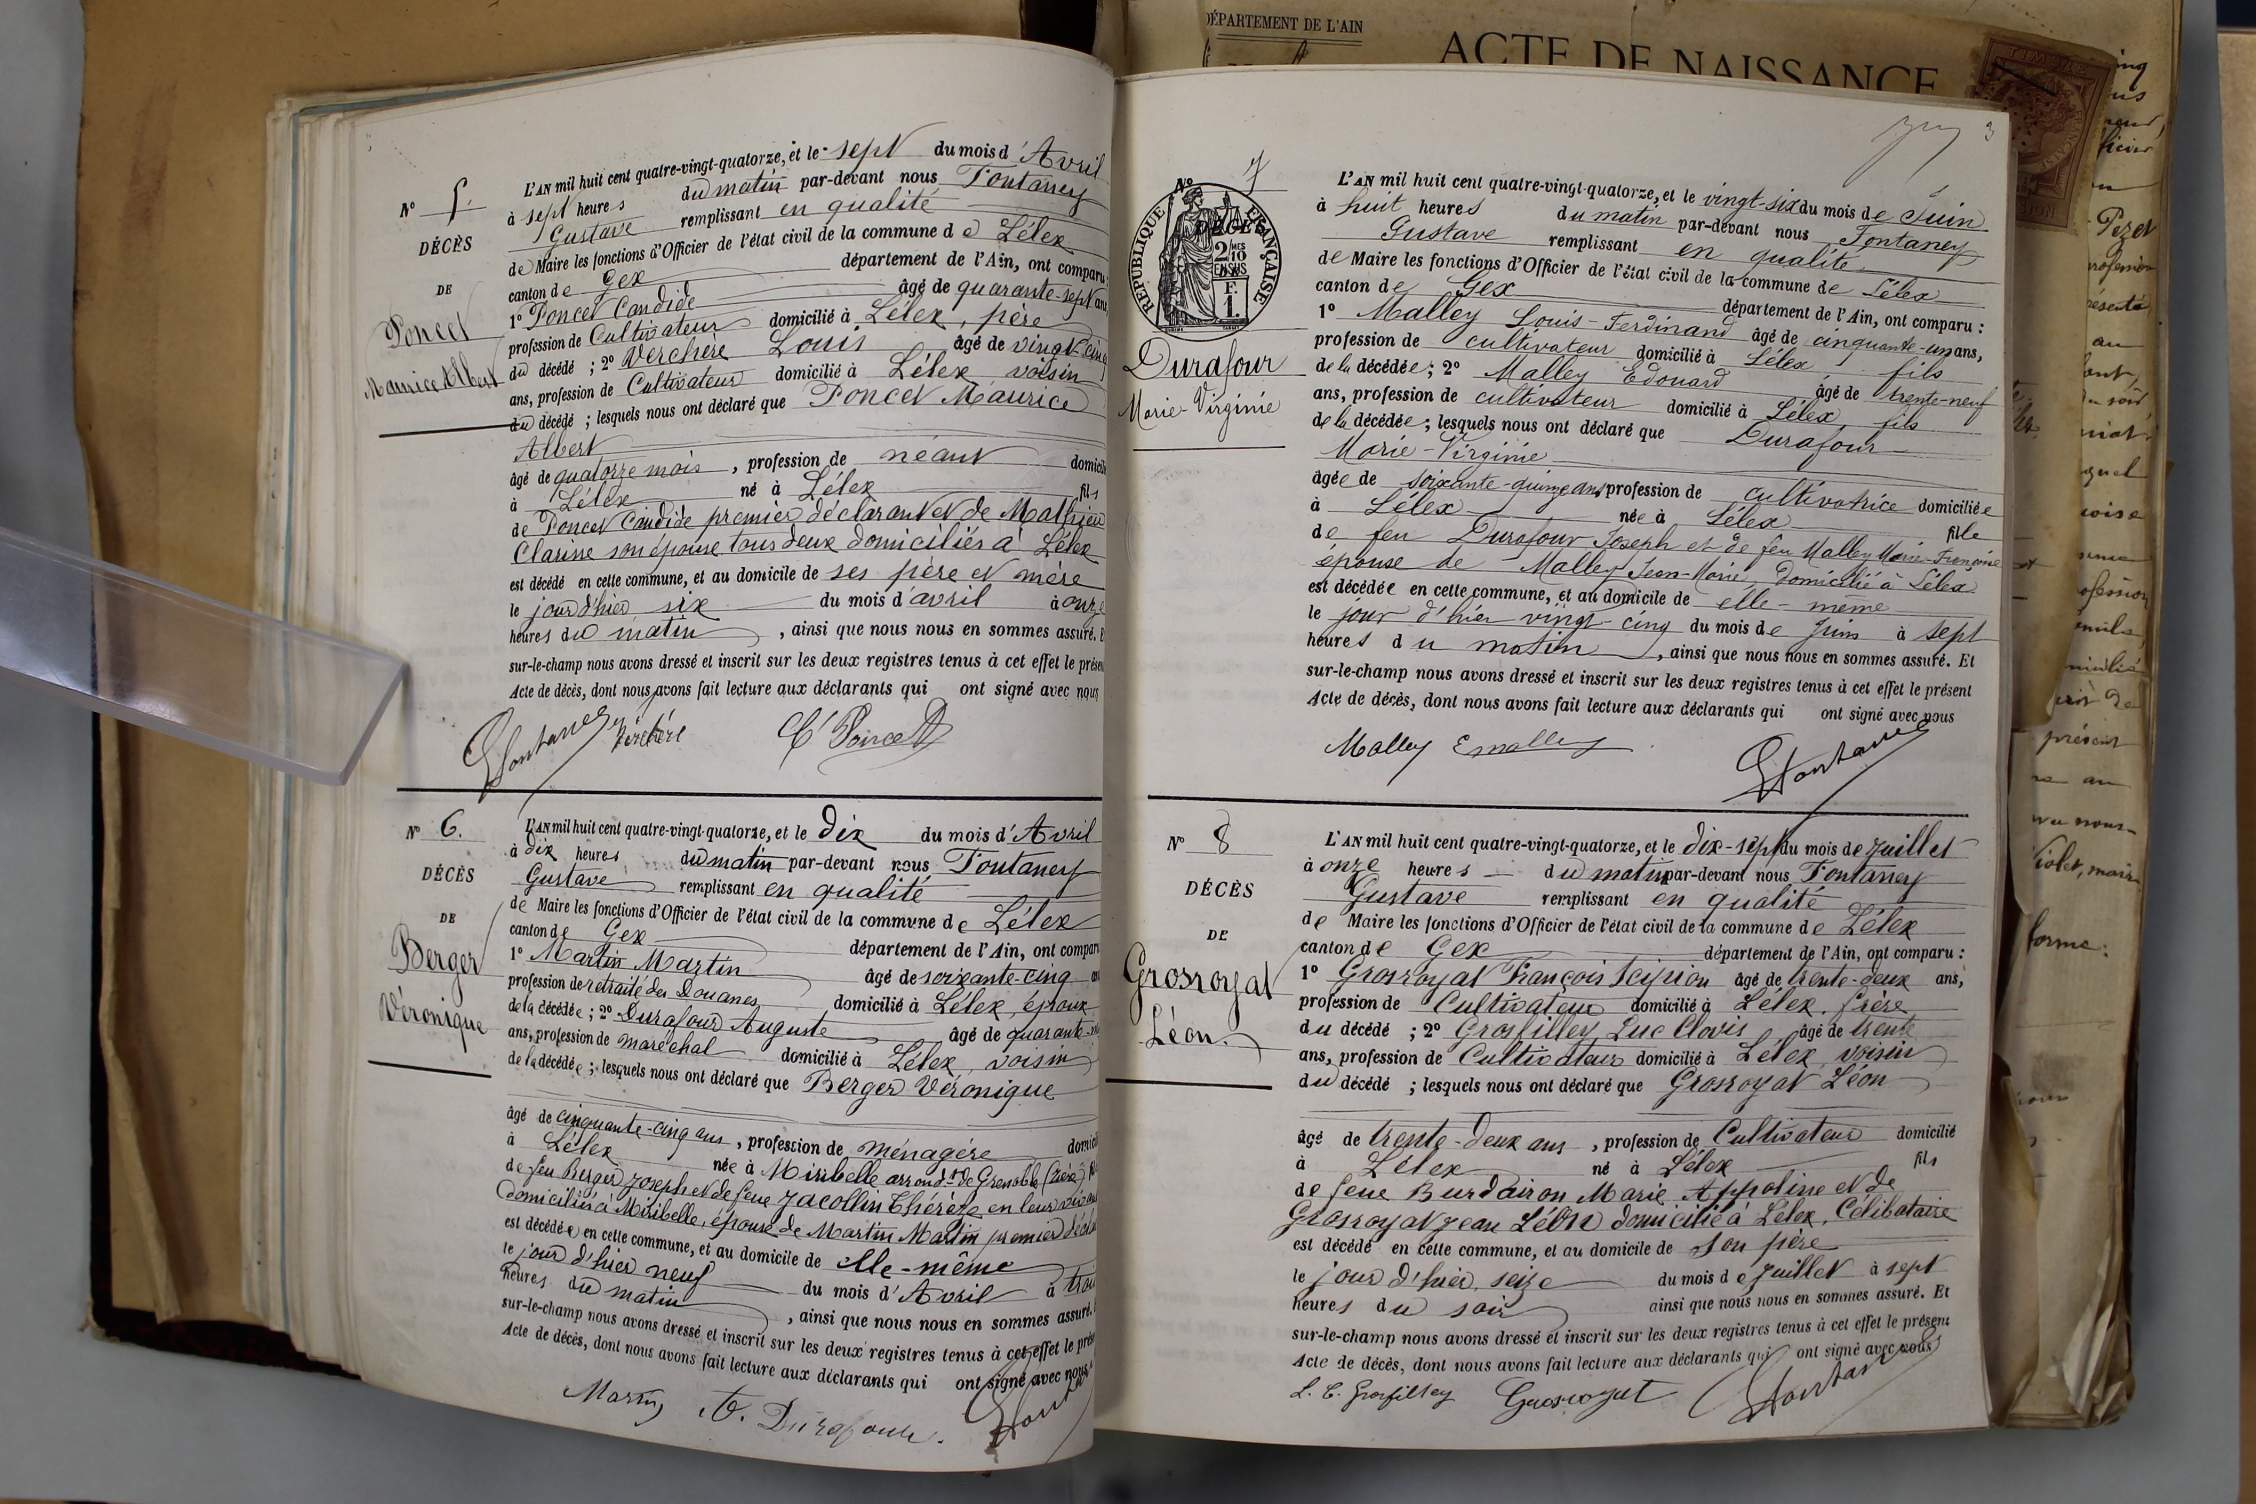 N° 5.
DÉCÈS
DE
Poncet
Maurice Albert
L'AN mil huit cent quatre-vingt-quatorze, et le sept du mois d'Avril
à sept heures du matin par-devant nous Fontaney
Gustave remplissant en qualité
de Maire les fonctions d'Officier de l'état civil de la commune de Lélex
canton de Gex département de l'Ain, ont comparu :
1° Poncet Candide âgé de quarante-sept ans,
profession de Cultivateur domicilié à Lélex, père
du décédé ; 2° Verchère Louis âgé de vingt-cinq
ans, profession de Cultivateur domicilié à Lélex voisin
du décédé ; lesquels nous ont déclaré que Poncet Maurice
Albert
âgé de quatorze mois, profession de néant domicilié
à Lélex né à Lélex fils
de Poncet Candide premier déclarant et de Mathieu
Clarisse son épouse tous deux domiciliés à Lélex
est décédé en cette commune, et au domicile de ses père et mère
le jour d'hier six du mois d'avril à onze
heures du matin, ainsi que nous nous en sommes assuré. E
sur-le-champ nous avons dressé et inscrit sur les deux registres tenus à cet effet le présen
Acte de décès, dont nous avons fait lecture aux déclarants qui ont signé avec nous
GFontaney Verchère C Poncet
N° 6.
DÉCÈS
DE
Berger
Véronique
L'AN mil huit cent quatre-vingt-quatorze, et le dix du mois d'Avril
à dix heures du matin par-devant nous Fontaney
Gustave remplissant en qualité
de Maire les fonctions d'Officier de l'état civil de la commune de Lélex
canton de Gex département de l'Ain, ont comparu
1° Martin Martin âgé de soixante-cinq an
profession de retraité des Douanes domicilié à Lélex, époux
de la décédée ; 2° Durafour Auguste âgé de quarante-
ans, profession de maréchal domicilié à Lélex, voisin
de la décédée ; lesquels nous ont déclaré que Berger Véronique
âgé de cinquante-cinq ans, profession de ménagère domicil
à Lélex née à Miribelle arrond.t de Grenoble (Isère)
de feu Berger Joseph et de feue Jacollin Thérèze en leur vivant
domiciliés à Miribelle, épouse de Martin Martin premier décla
est décédée en cette commune, et au domicile de elle-même
le jour d'hier neuf du mois d'Avril à trois
heures du matin, ainsi que nous nous en sommes assuré.
sur-le-champ nous avons dressé et inscrit sur les deux registres tenus à cet effet le prése
Acte de décès, dont nous avons fait lecture aux déclarants qui ont signé avec nous
Martin A. Durafour. GFont
DÉPARTEMENT DE L'AIN
ACTE DE NAISSANCE
3
N° 7
RÉPUBLIQUE FRANÇAISE
2/10 EN SUS
F. 1.
Durafour
Marie-Virginie
L'AN mil huit cent quatre-vingt-quatorze, et le vingt-six du mois de Juin
à huit heures du matin par-devant nous Fontaney
Gustave remplissant en qualité
de Maire les fonctions d'Officier de l'état civil de la commune de Lélex
canton de Gex département de l'Ain, ont comparu :
1° Malley Louis-Ferdinand âgé de cinquante-un ans,
profession de cultivateur domicilié à Lélex fils
de la décédée ; 2° Malley Edouard âgé de trente-neuf
ans, profession de cultivateur domicilié à Lélex fils
de la décédée ; lesquels nous ont déclaré que Durafour
Marie-Virginie
âgée de soixante-quinze ans profession de cultivatrice domiciliée
à Lélex née à Lélex fille
de feu Durafour Joseph et de feu Malley Marie-Françoise
épouse de Malley Jean-Marie, domicilié à Lélex
est décédée en cette commune, et au domicile de elle-même
le jour d'hier vingt-cinq du mois de Juin à sept
heures du matin, ainsi que nous nous en sommes assuré. Et
sur-le-champ nous avons dressé et inscrit sur les deux registres tenus à cet effet le présent
Acte de décès, dont nous avons fait lecture aux déclarants qui ont signé avec nous
Malley Emalley GFontaney
N° 8
DÉCÈS
DE
Grosroyat
Léon.
L'AN mil huit cent quatre-vingt-quatorze, et le dix-sept du mois de Juillet
à onze heures du matin par-devant nous Fontaney
Gustave remplissant en qualité
de Maire les fonctions d'Officier de l'état civil de la commune de Lélex
canton de Gex département de l'Ain, ont comparu :
1° Grosroyat François Scipion âgé de trente-deux ans,
profession de Cultivateur domicilié à Lélex, frère
du décédé ; 2° Grosfilley Luc Clovis âgé de trente
ans, profession de Cultivateur domicilié à Lélex, voisin
du décédé ; lesquels nous ont déclaré que Grosroyat Léon
âgé de trente-deux ans, profession de Cultivateur domicilié
à Lélex né à Lélex fils
de feue Burdairon Marie Appoline et de
Grosroyat Jean Léon domicilié à Lélex, Célibataire
est décédé en cette commune, et au domicile de son père
le jour d'hier, seize du mois de Juillet à sept
heures du soir ainsi que nous nous en sommes assuré. Et
sur-le-champ nous avons dressé et inscrit sur les deux registres tenus à cet effet le présent
Acte de décès, dont nous avons fait lecture aux déclarants qui ont signé avec nous
L. C. Grosfilley Grosroyat GFontaney
Pezet
présent
Violet, maire
forme: